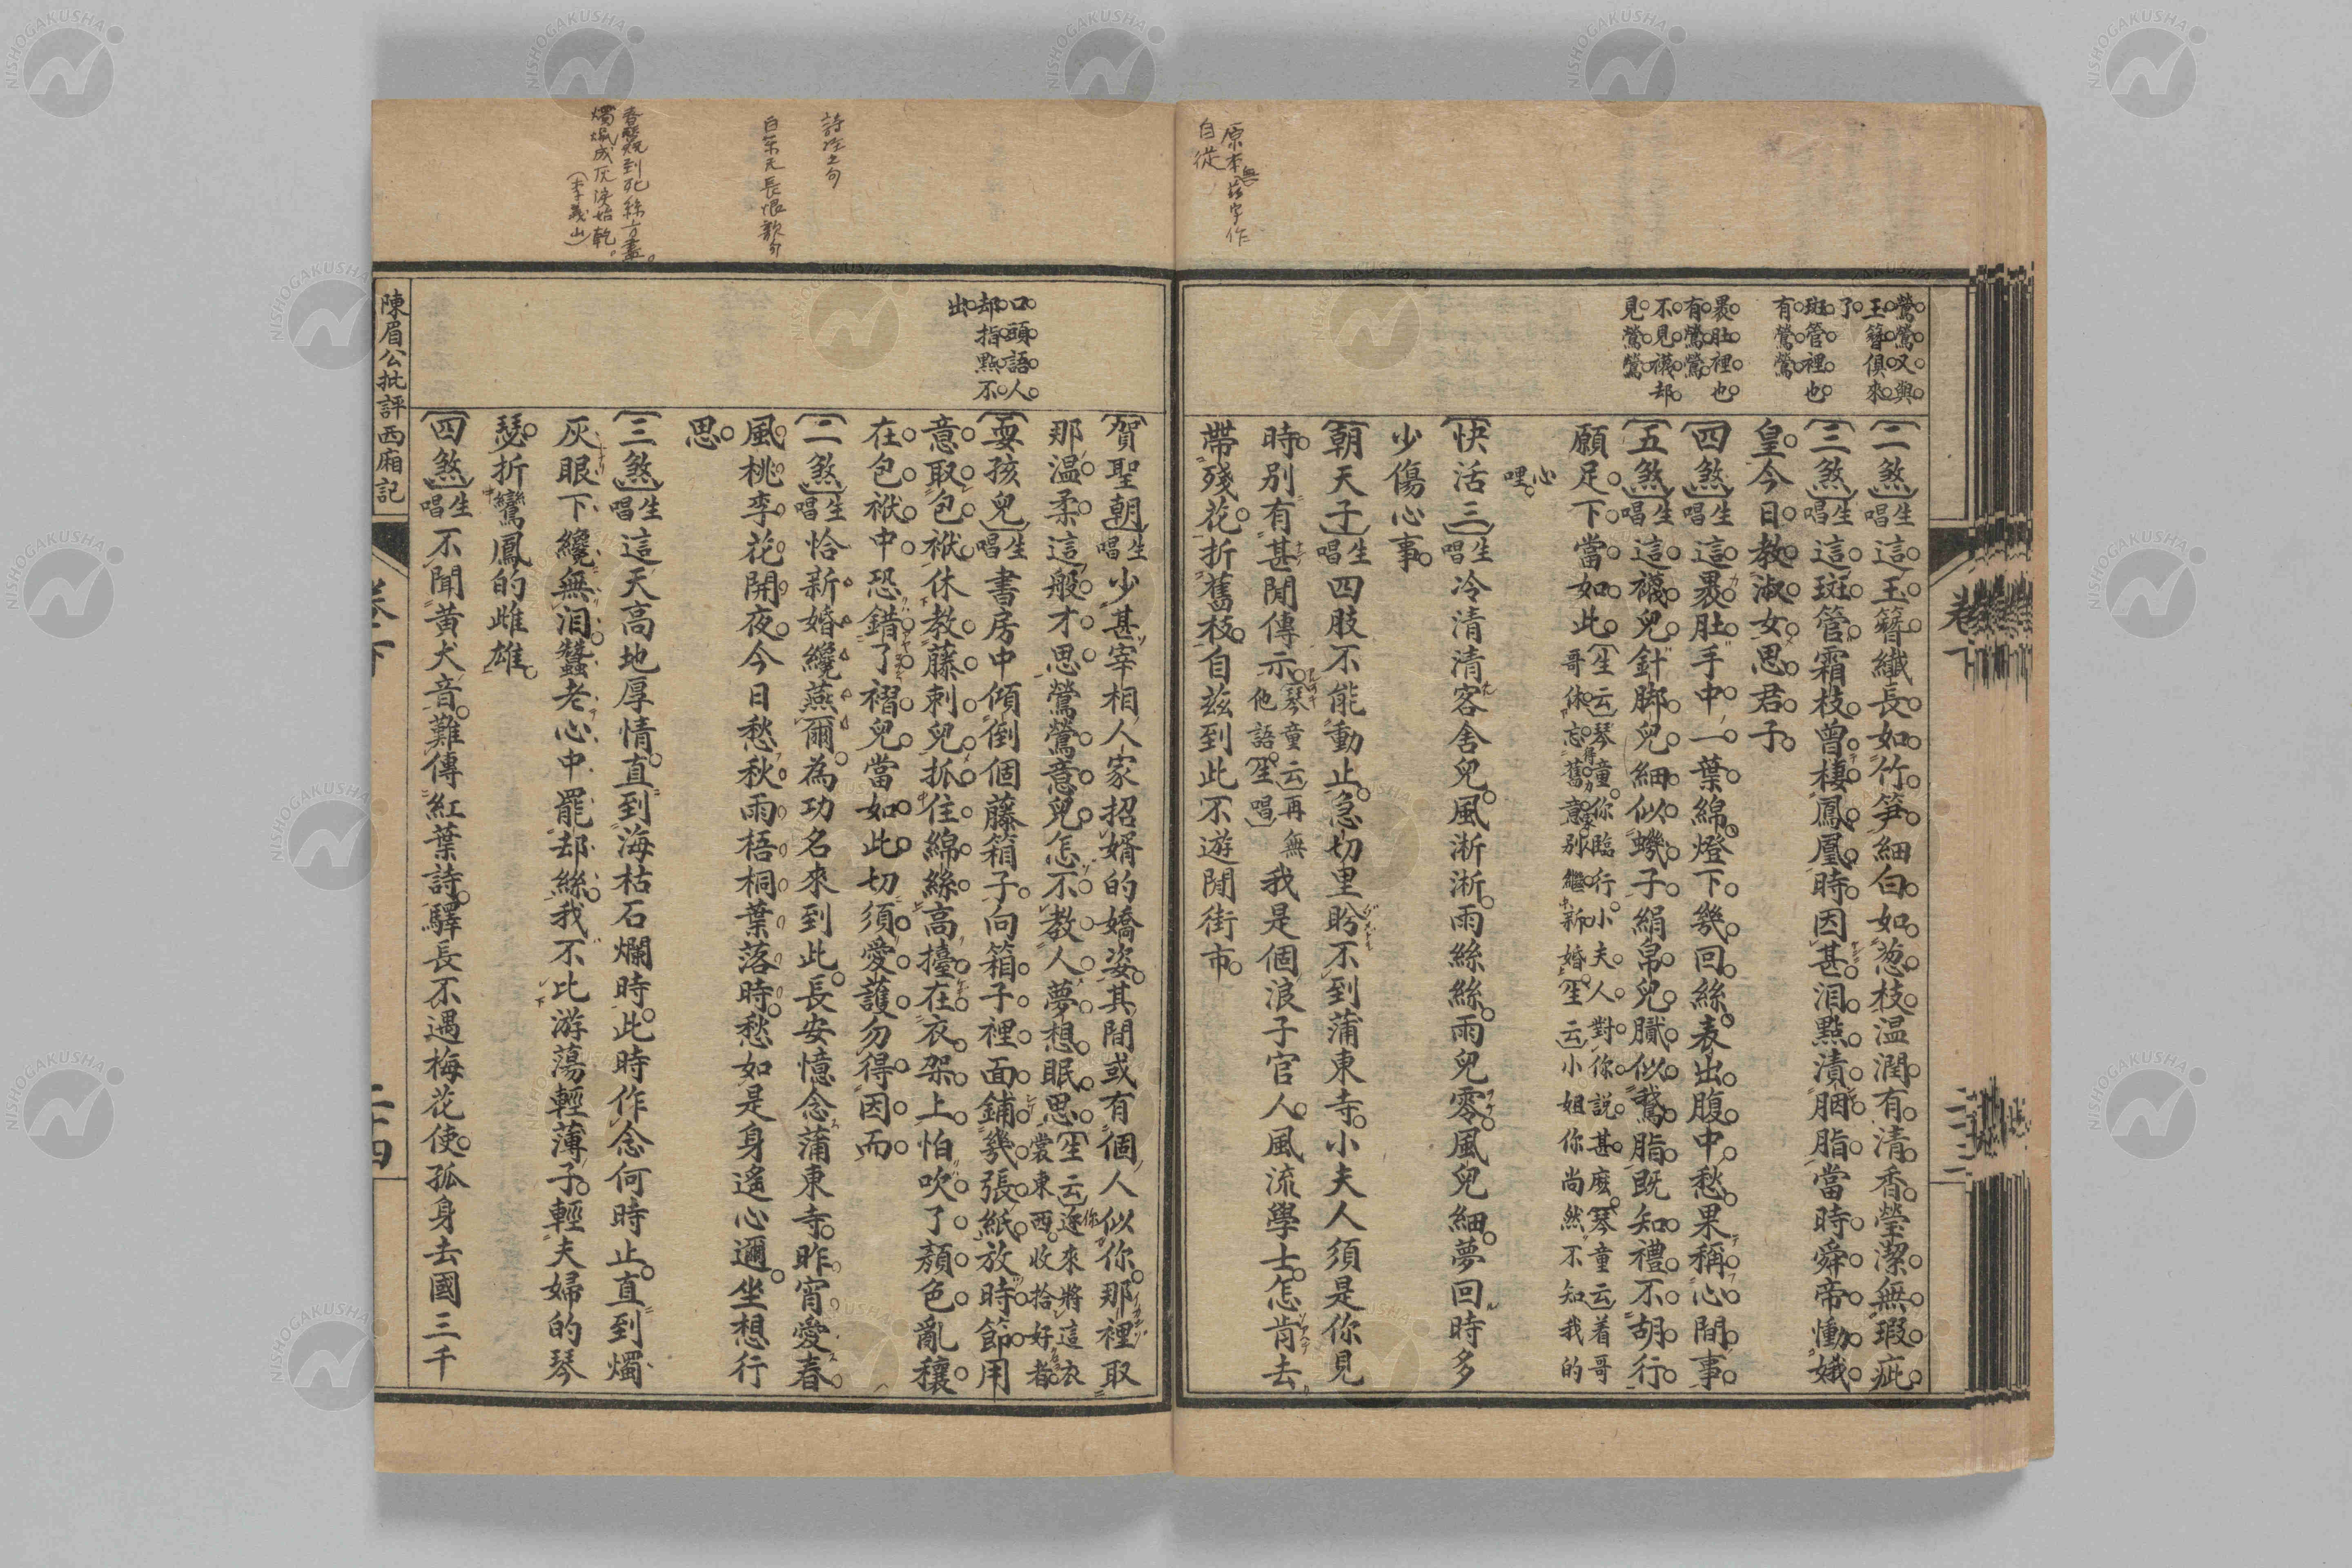 原本無茲字作
自從
鶯鶯又與
玉簪俱來
了
斑管裡也
有鶯鶯
裹肚裡也
有鶯鶯
不見襪却
見鶯鶯
卷下
【二煞】生唱這玉簪纖長如竹笋細白如葱枝温潤有清香瑩潔無瑕疵
【三煞】生唱這斑管霜枝曾棲鳳凰時因甚泪點漬胭脂當時舜帝慟娥
皇今日教淑女思君子
【四煞】生唱這裹肚手中一葉綿燈下幾回絲表出腹中愁果稱心間事
【五煞】生唱這襪兒針脚兒細似蟣子絹帛兒膩似鵝脂既知禮不胡行
願足下當如此【生云】琴童你臨行小夫人對你説甚麽【琴童云】着哥
哥休忘舊意别繼新婚【生云】小姐你尚然不知我的
心
哩
【快活三】生唱冷清清客舍兒風淅淅雨絲絲雨兒零風兒細夢回時多
少傷心事
【朝天子】生唱四肢不能動止急切里盼不到蒲東寺小夫人須是你見
時别有甚閒傳示【琴童云】再無
他語【生唱】我是個浪子官人風流學士怎肯去
帶殘花折舊枝自茲到此不遊閒街市
詩經之句
白樂天長恨歌句
春蠶到死絲方盡。
燭燼成灰淚始乾。
(李義山)
口頭語人
却指點不
出
【賀聖朝】生唱少甚宰相人家招婿的嬌姿其間或有個人似你那裡取
那温柔這般才思鶯鶯意兒怎不教人夢想眠思【生云】你將這衣
裳東西收拾好者
【耍孩兒】生唱書房中傾倒個藤箱子向箱子裡面鋪幾張紙放時節用
意取包袱休教藤刺兒抓住綿絲高擡在衣架上怕吹了顔色亂穰
在包袱中恐錯了褶兒當如此切須愛護勿得因而
【二煞】生唱恰新婚纔燕爾為功名來到此長安憶念蒲東寺昨宵愛春
風桃李花開夜今日愁秋雨梧桐葉落時愁如是身遙心邇坐想行
思
【三煞】生唱這天高地厚情直到海枯石爛時此時作念何時止直到燭
灰眼下纔無泪蠶老心中罷却絲我不比游蕩輕薄子輕夫婦的琴
瑟折鸞鳳的雌雄
【四煞】生唱不聞黄犬音難傳紅葉詩驛長不遇梅花使孤身去國三千
陳眉公批評西廂記
卷下